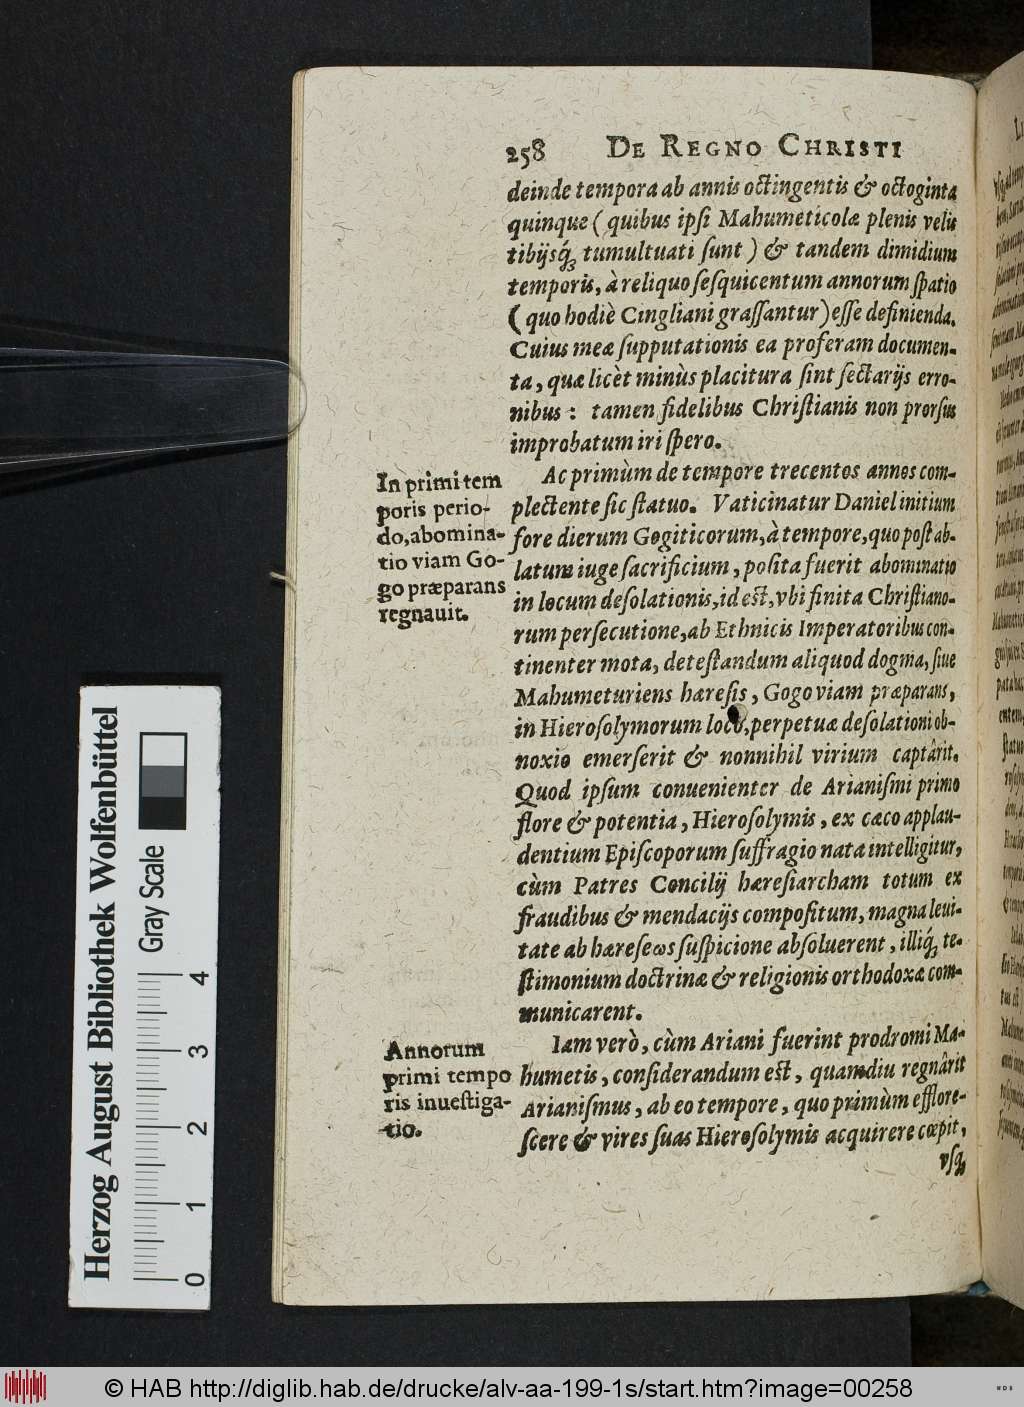 258 DE REGNO CHRISTI
deinde tempora ab annis octingentis & octoginta
quinque (quibus ipſi Mahumeticolæ plenis velis
tibijsq́ꝫ tumultuati ſunt) & tandem dimidium
temporis, à reliquo ſeſquicentum annorum ſpatio
(quo hodiè Cingliani graſſantur) eſſe definienda.
Cuius meæ ſupputationis ea proferam documen-
ta, quæ licèt minùs placitura ſint ſectarijs erro-
nibus: tamen fidelibus Chriſtianis non prorſus
improbatum iri ſpero.
In primi tem
poris perio-
do, abomina-
tio viam Go-
go præparans
regnauit.
Ac primùm de tempore trecentos annos com-
plectente ſic ſtatuo. Vaticinatur Daniel initium
fore dierum Gogiticorum, à tempore, quo poſt ab-
latum iuge ſacrificium, poſita fuerit abominatio
in locum deſolationis, id eſt, vbi finita Chriſtiano-
rum perſecutione, ab Ethnicis Imperatoribus con-
tinenter mota, deteſtandum aliquod dogma, ſiue
Mahumeturiens hæreſis, Gogo viam præparans,
in Hieroſolymorum loco, perpetuæ deſolationi ob-
noxio emerſerit & nonnihil virium captârit.
Quod ipſum conuenienter de Arianiſmi primo
flore & potentia, Hieroſolymis, ex cæco applau-
dentium Epiſcoporum ſuffragio nata intelligitur,
cùm Patres Concilij hæreſiarcham totum ex
fraudibus & mendacijs compoſitum, magna leui-
tate ab hæreſεως ſuſpicione abſoluerent, illiq́ꝫ te-
ſtimonium doctrinæ & religionis orthodoxæ com-
municarent.
Annorum
primi tempo
ris inueſtiga-
tio.
Iam verò, cùm Ariani fuerint prodromi Ma-
humetis, conſiderandum eſt, quamdiu regnârit
Arianiſmus, ab eo tempore, quo primùm efflore-
ſcere & vires ſuas Hieroſolymis acquirere cœpit,
vſqꝫ
Herzog August Bibliothek Wolfenbüttel
Gray Scale
0 1 2 3 4
© HAB http://diglib.hab.de/drucke/alv-aa-199-1s/start.htm?image=00258